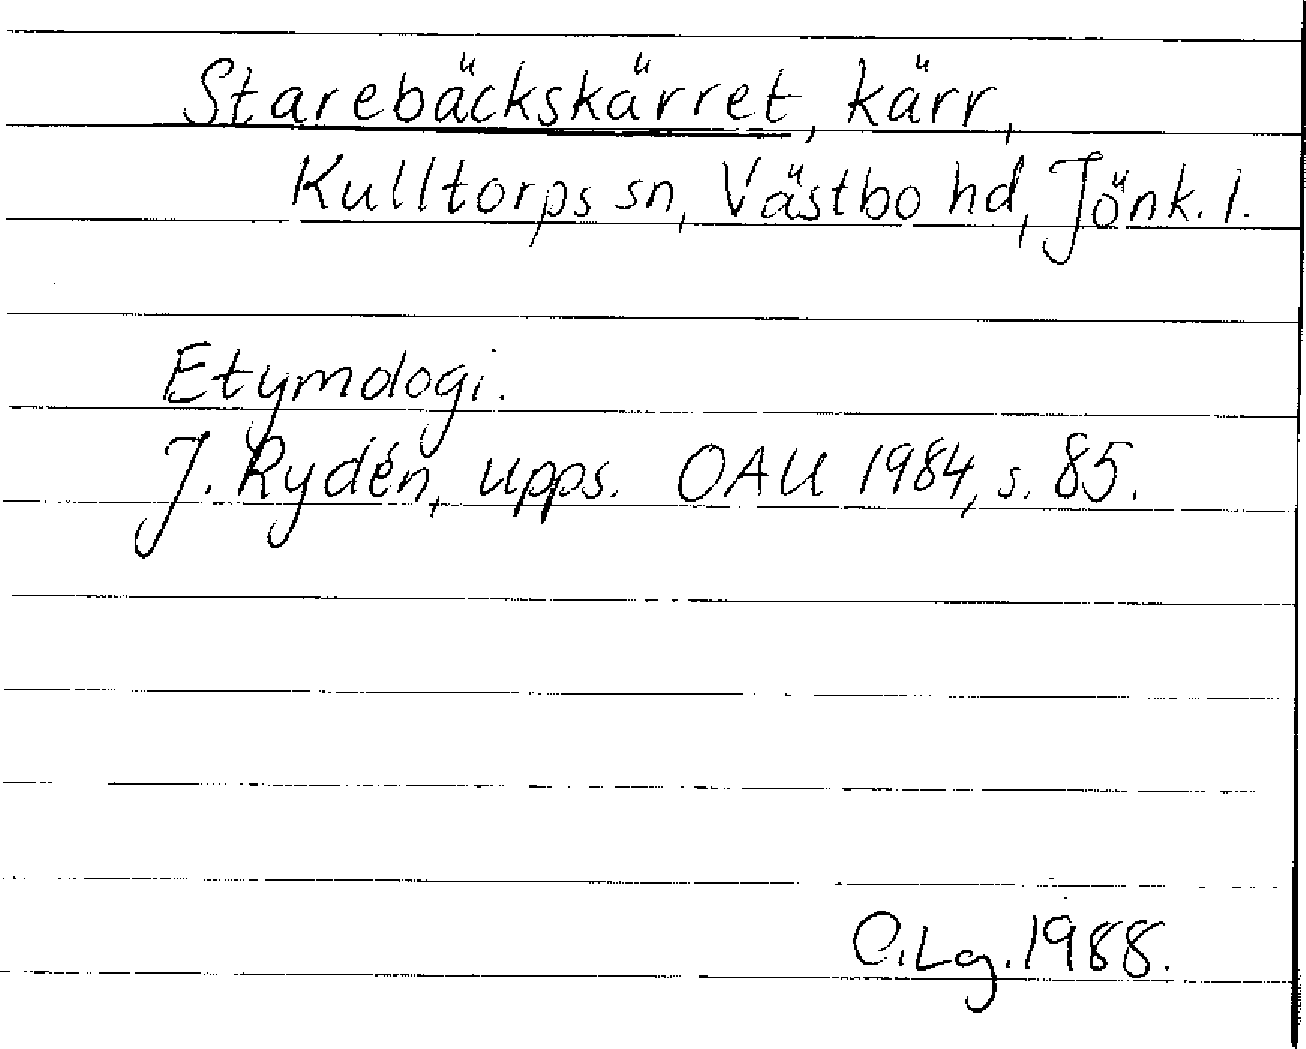 Starebäckskärret, kärr,
Kulltorps sn, Västbo hd, Jönk. l.
Etymologi.
J. Rydén, upps. OAU 1984, s. 85.
C.Lg. 1988.